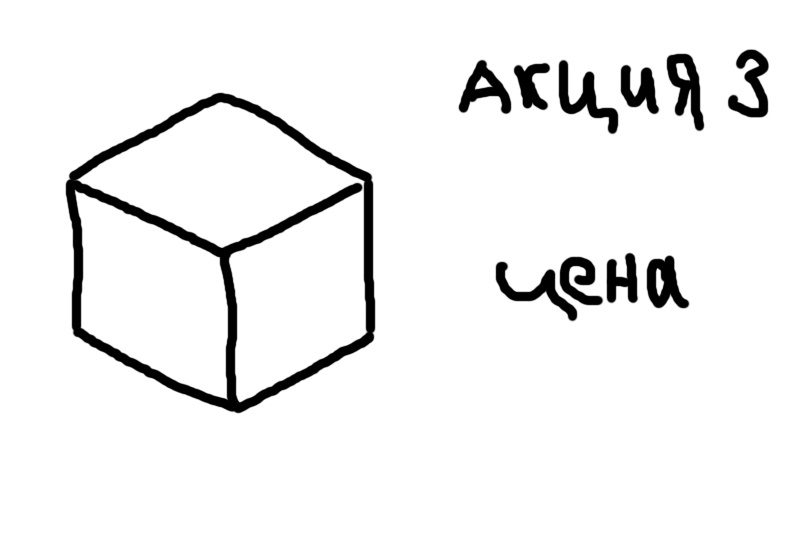 АКЦИЯ 3
цена